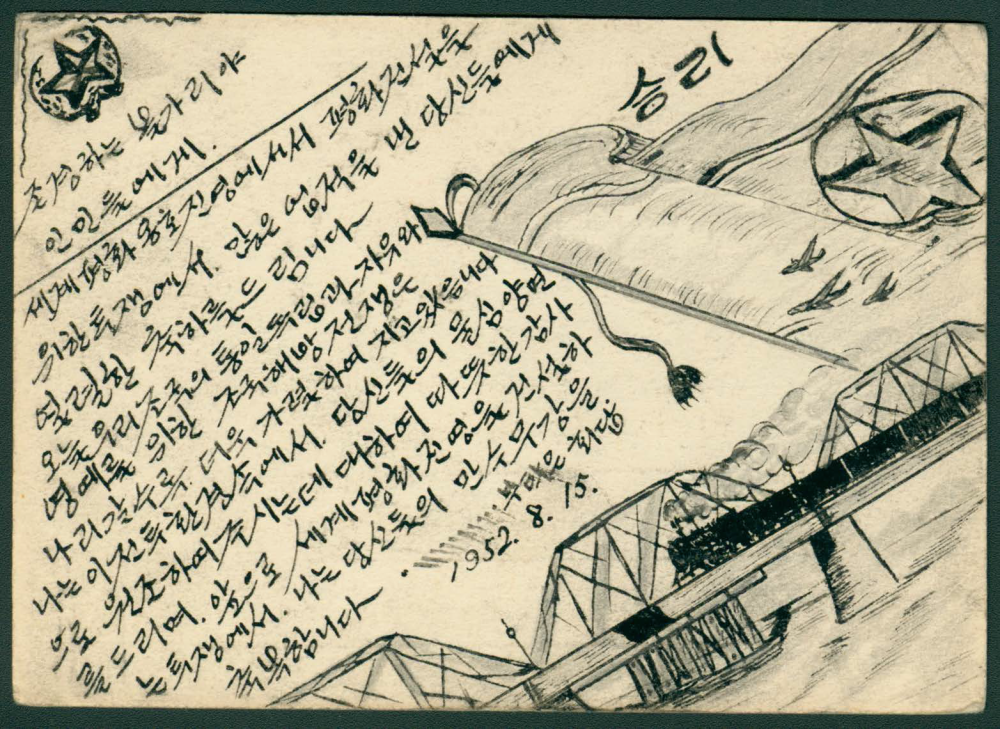 승리
존경하는 불가리야
인민들에게.
세계평화 옹호진영에서서 평화건설을
위한투쟁에서. 많은 업적을 낸 당신들에게
열렬한 축하를 드립니다
오늘 우리조국의 통일 독립과 자유와
영예를 위한 조국해방 전쟁은
나리갈수록 더욱 가렬하여 지고있읍니다
나는 이전투환경속에서. 당신들의 물심 양면
으로 원조하여주시는데 대하여 따뜻한 감사
를 드리며. 앞으로 세계평화 진영을 건설하
는 투쟁에서. 나는 당신들의 만수무강을
축복합니다
1952. 8. 15.